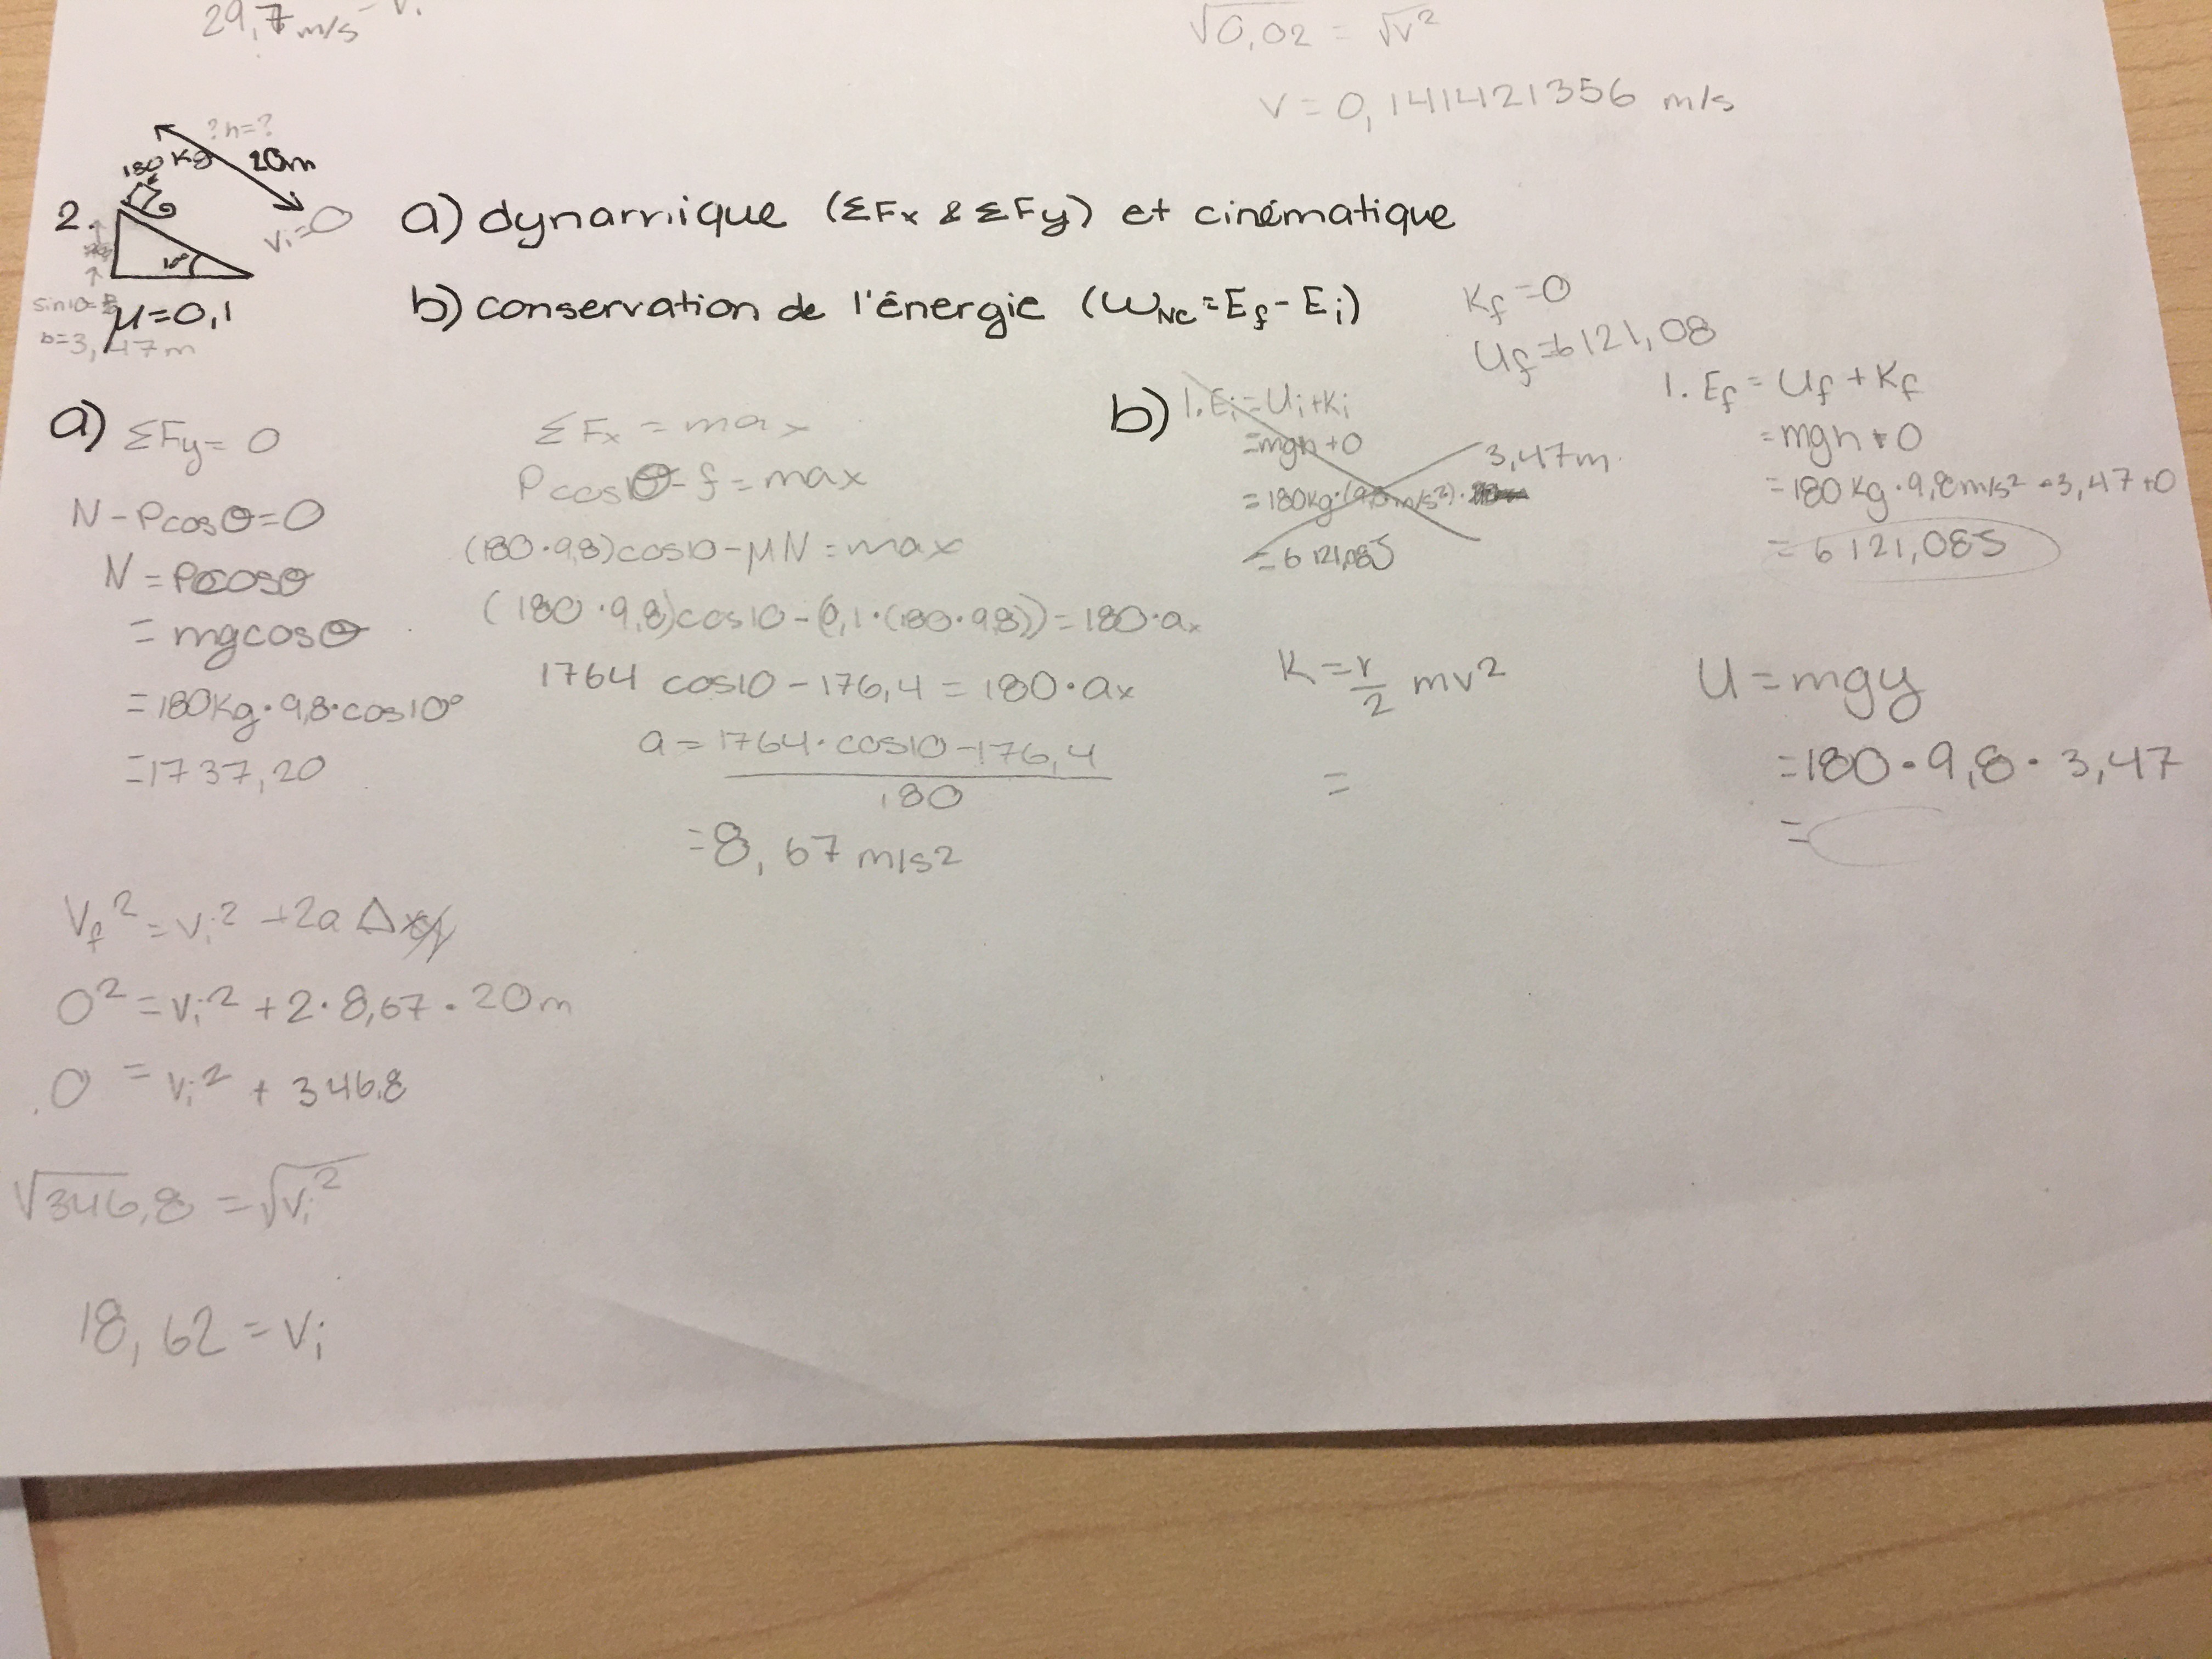 29,7 m/s = Vi
√0,02 = √v²
V = 0,141421356 m/s
?h=?
180 Kg
20m
2.
Vi=0
10°
sin10=
b=3,47m
μ=0,1
a) dynamique (ΣFx & ΣFy) et cinématique
b) conservation de l'énergie (WNC=Ef-Ei)
Kf=0
Uf=6121,08
a) ΣFy= 0
N-Pcosθ=0
N = Pcosθ
= mgcosθ
=180Kg·9,8·cos10°
=1737,20
ΣFx = max
Pcosθ-f = max
(180·9,8)cos10-μN = max
(180·9,8)cos10-(0,1·(180·9,8))=180·ax
1764 cos10-176,4 = 180·ax
a = 1764·cos10-176,4
180
=8,67 m/s2
b) 1. Ei=Ui+Ki
=mgh+0
3,47m
=180kg·(9,8m/s²)·
=6121,08J
1. Ef = Uf + Kf
=mgh+0
=180Kg·9,8m/s²·3,47+0
= 6121,08J
K = 1/2 mv²
=
U = mgy
=180·9,8·3,47
=
Vf² = Vi² +2a Δx
0² = Vi² + 2·8,67·20m
0 = Vi² + 346,8
√346,8 = √Vi²
18,62 = Vi